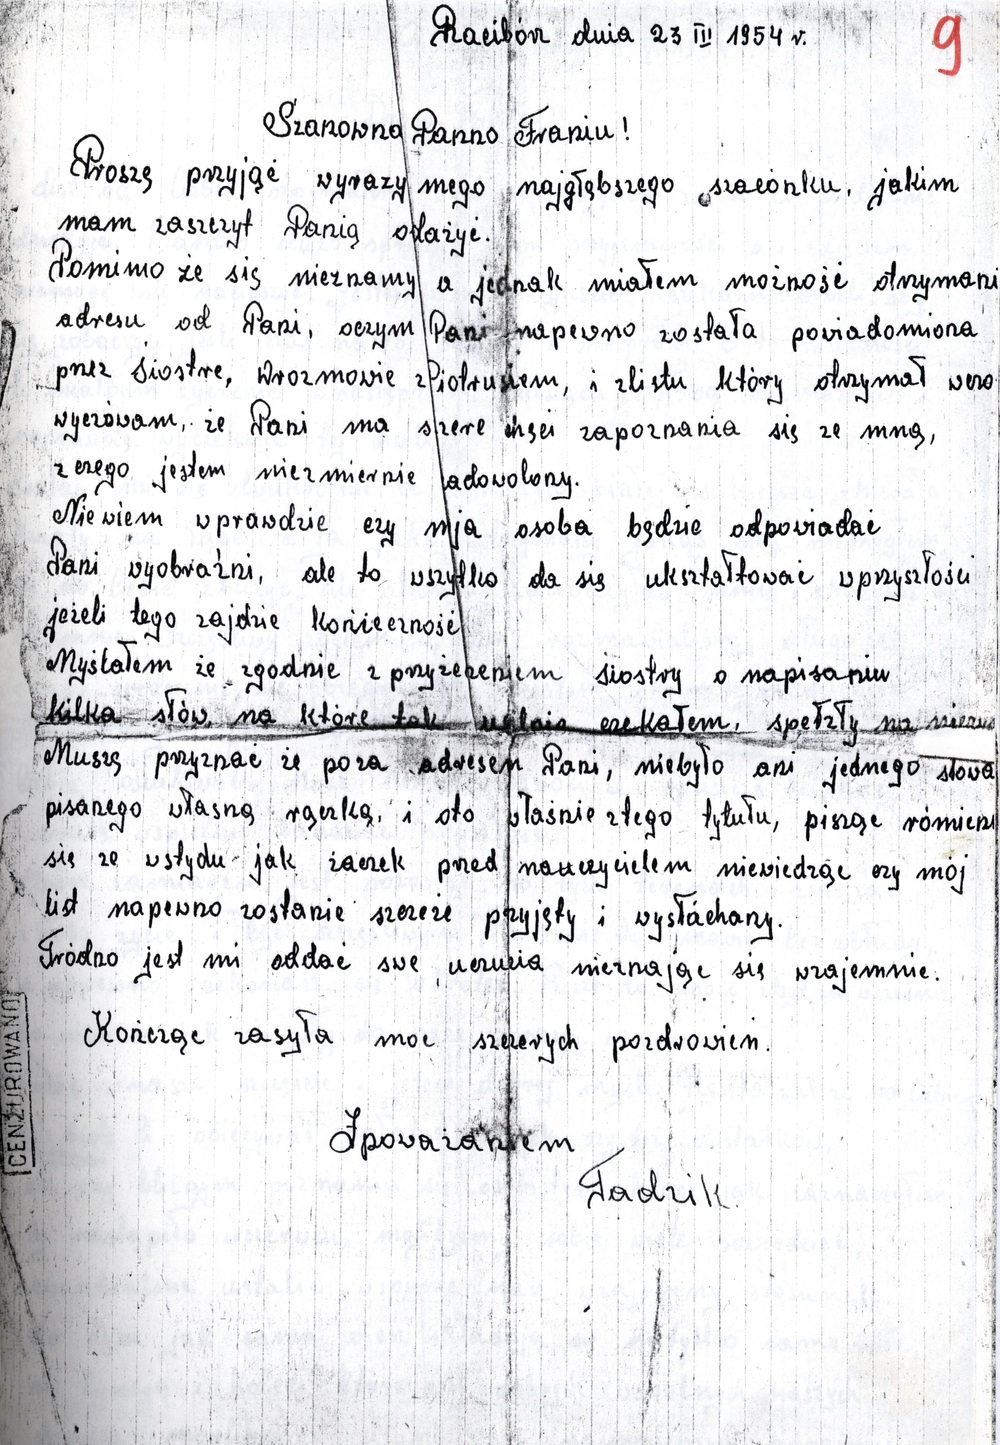 Racibórz dnia 23 III 1954 r.
9
Szanowna Panno Franiu!
Proszę przyjąć wyrazy mego najgłąbszego szacónku, jakim
mam zaszczyt Panią odażyć.
Pomimo że się nieznamy a jednak miałem możność otrzymani
adresu od Pani, oczym Pani napewno została poviadomiona
przez Siostrę, Wrozmowie zPiotrusiem, i zlistu który otrzymał wczo
wyczówam, że Pani ma szcere chęci zapoznania się ze mną,
zczego jestem niezmiernie zadowolony.
Niewiem wprawdzie czy moja osoba będzie odpowiadać
Pani wyobraźni, ale to wszytko da się ukształtować wprzyszłości
jeżeli tego zajdzie konieczność
Myślałem że zgodnie z przyżeczeniem siostry o napisaniu
kilka słów, na które tak czekałem, spełzły na
Muszę przyznać że poza adresem Pani, niebyło ani jednego słowa
pisanego własną rączką, i oto właśnie ztego tytułu, pisząc rómieni
się ze wstydu jak żaczek przed nauczycielem niewiedząc czy mój
list napewno zostanie szczeże przyjęty i wysłáchany.
Tródno jest mi oddać swe uczucia nieznając się wzajemnie.
Kończąc zasyła moc szczerych pozdrowień.
Zpoważaniem
Tadzik.
CENZUROWANO